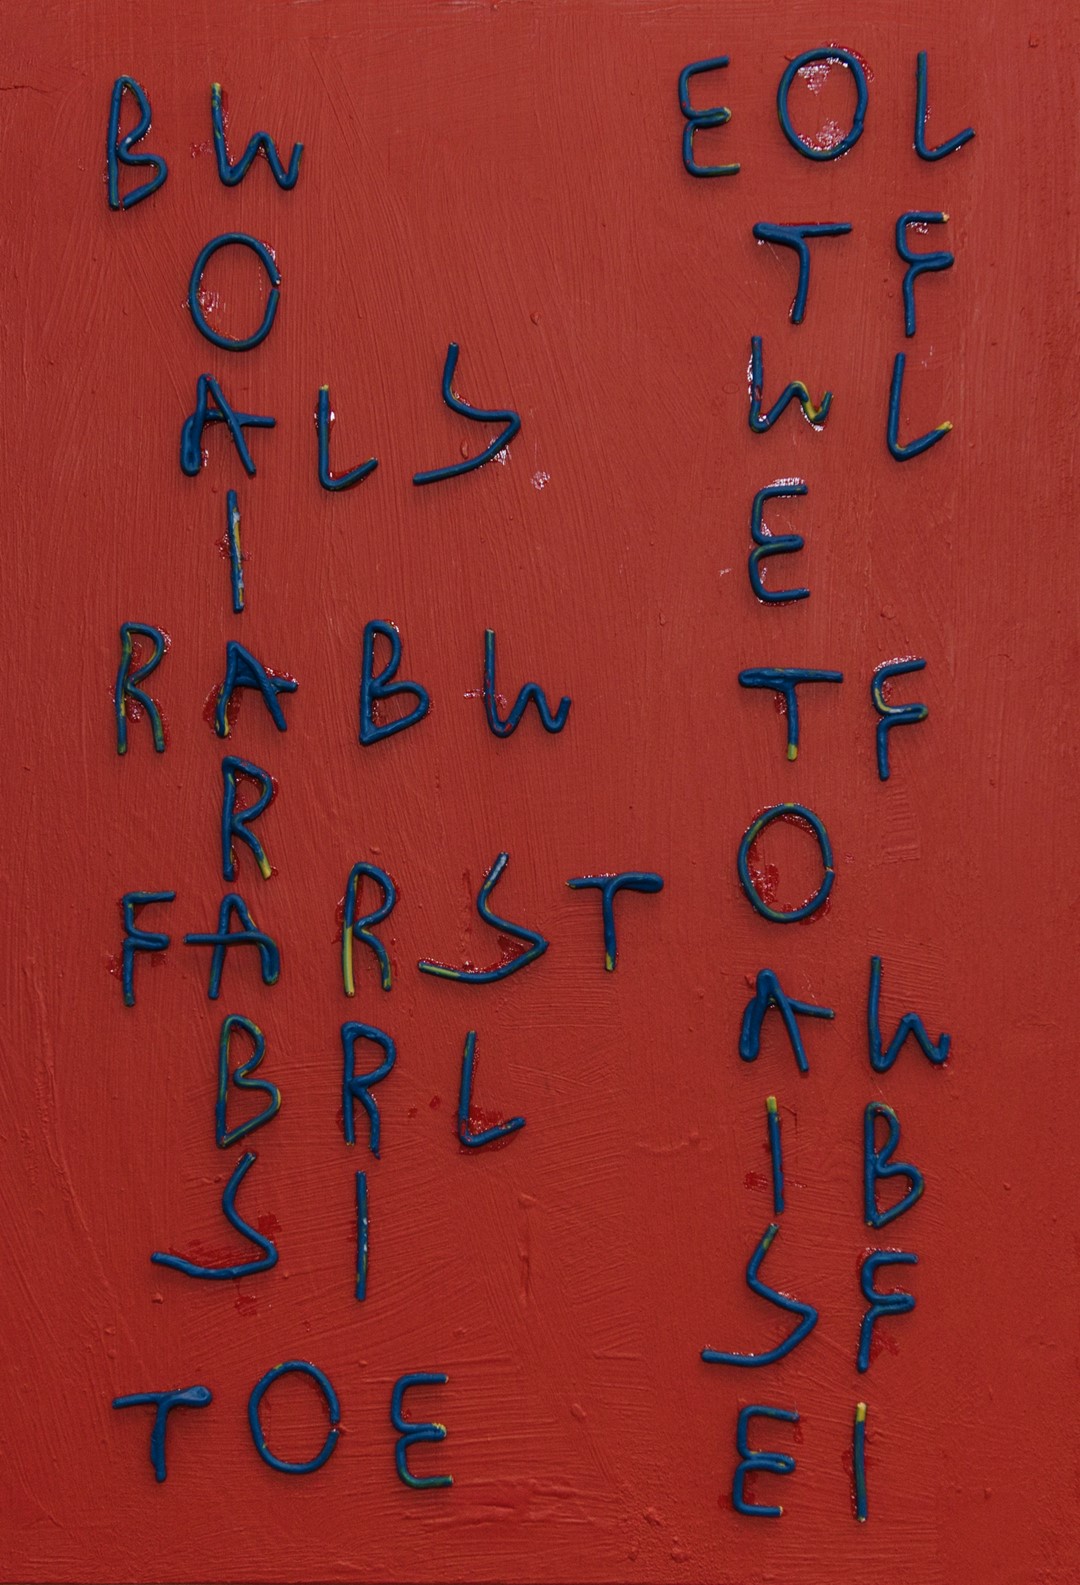 BW
O
ALS
I
RABW
R
FARST
BRL
SI
TOE
EOL
TF
WL
E
TF
O
AW
IB
SF
EI